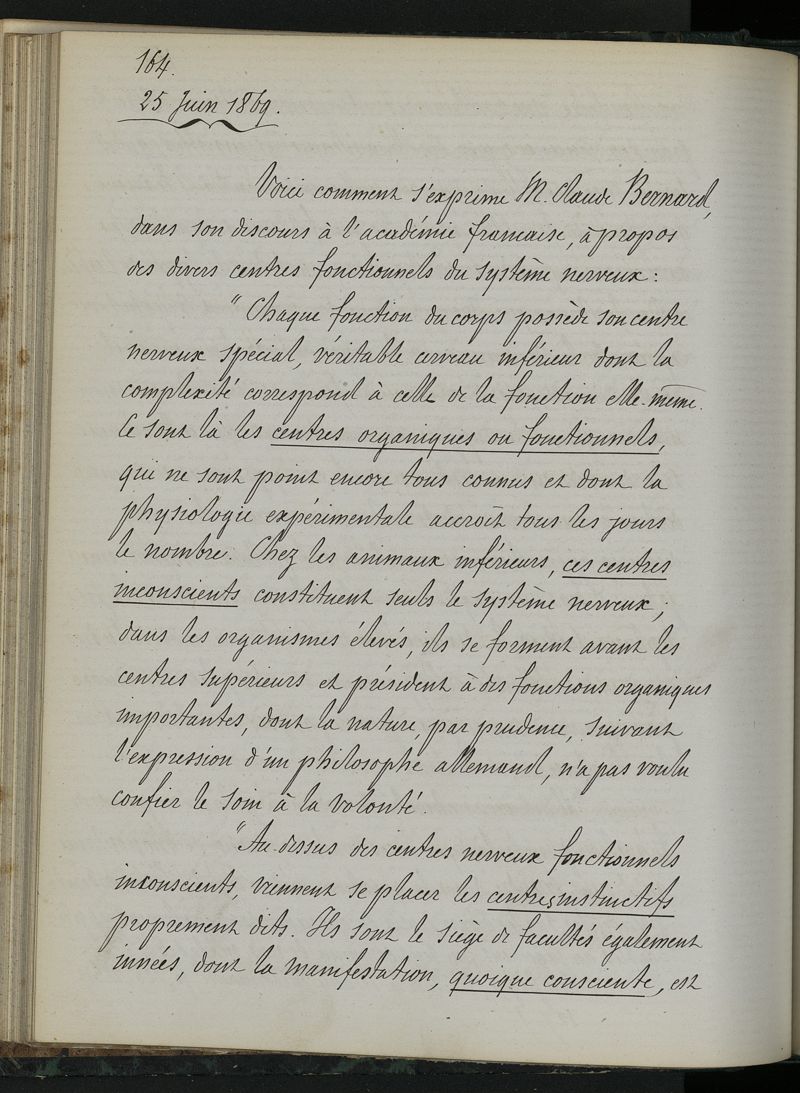 164.
25 Juin 1869.
Voici comment s'exprime M. Claude Bernard,
dans son discours à l'académie francaise, à propos
des divers centres fonctionnels du système nerveux :
"Chaque fonction du corps possède son centre
nerveux spécial, véritable cerveau inférieur dont la
complexité correspond à celle de la fonction elle-même.
Ce sont là les centres organiques ou fonctionnels,
qui ne sont point encore tous connus et dont la
physiologie expérimentale accroît tous les jours
le nombre. Chez les animaux inférieurs, ces centres
inconscients constituent seuls le système nerveux ;
dans les organismes élevés, ils se forment avant les
centres supérieurs et président à des fonctions organiques
importantes, dont la nature, par prudence, suivant
l'expression d'un philosophe allemand, n'a pas voulu
confier le soin à la volonté.
"Au-dessus des centres nerveux fonctionnels
inconscients, viennent se placer les centres instinctifs
proprement dits. Ils sont le siège de facultés également
innées, dont la manifestation, quoique consciente, est